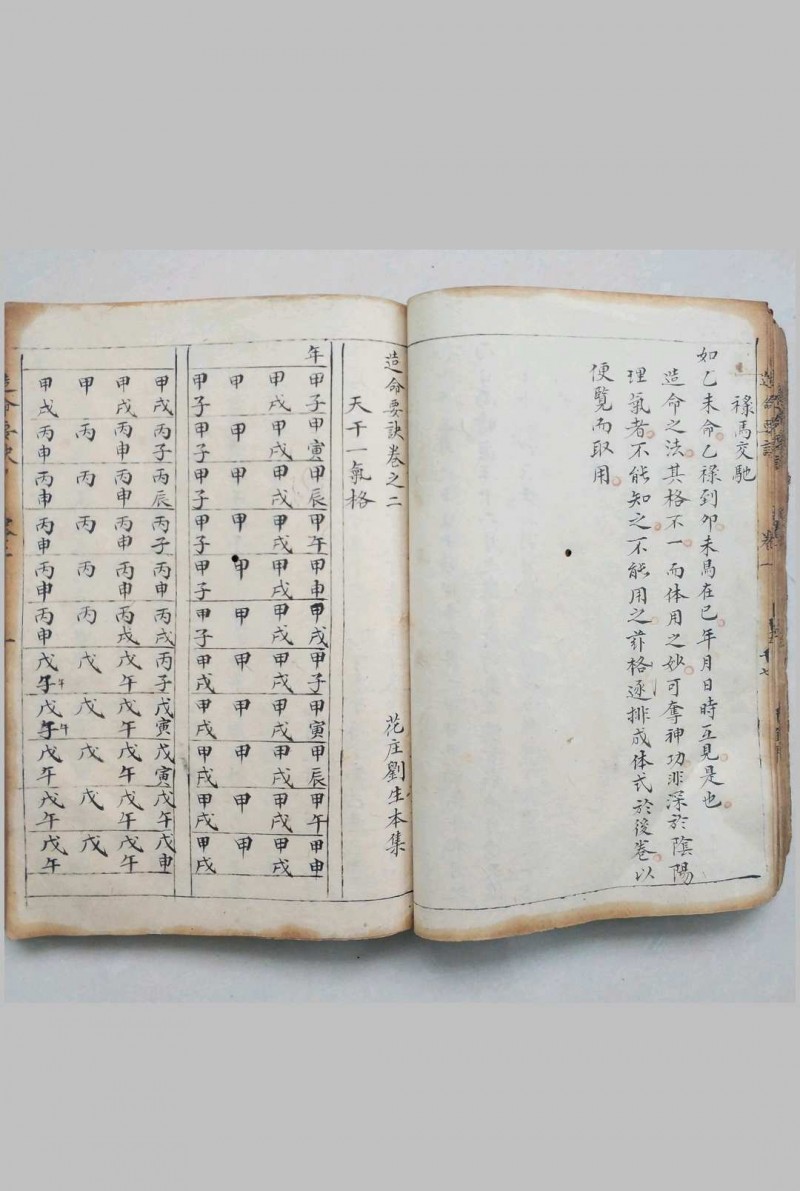 造命要訣 卷一
禄馬交馳
如乙未命乙禄到卯未馬在巳年月日時互見是也
造命之法其格不一而体用之妙可奪神功非深於隂陽
理氣者不能知之不能用之格逐排成体式於後卷以
便覧而取用
造命要訣卷之二 花庄劉生本集
天干一氣格
年 甲子 甲寅 甲辰 甲午 甲申 甲戌 甲子 甲寅 甲辰 甲午 甲申
甲戌 甲戌 甲戌 甲戌 甲戌 甲戌 甲戌 甲戌 甲戌 甲戌 甲戌
甲 甲 甲 甲 甲 甲 甲 甲 甲 甲 甲
甲子 甲子 甲子 甲子 甲子 甲子 甲戌 甲戌 甲戌 甲戌 甲戌
甲戌 丙子 丙辰 丙子 丙申 丙戌 丙子 戊寅 戊寅 戊午 戊申
甲戌 丙申 丙申 丙申 丙申 丙戌 戊午 戊午 戊午 戊午 戊午
甲 丙 丙 丙 丙 丙 戊 戊 戊 戊 戊
甲戌 丙申 丙申 丙申 丙申 丙申 戊午午 戊午午 戊午 戊午 戊午